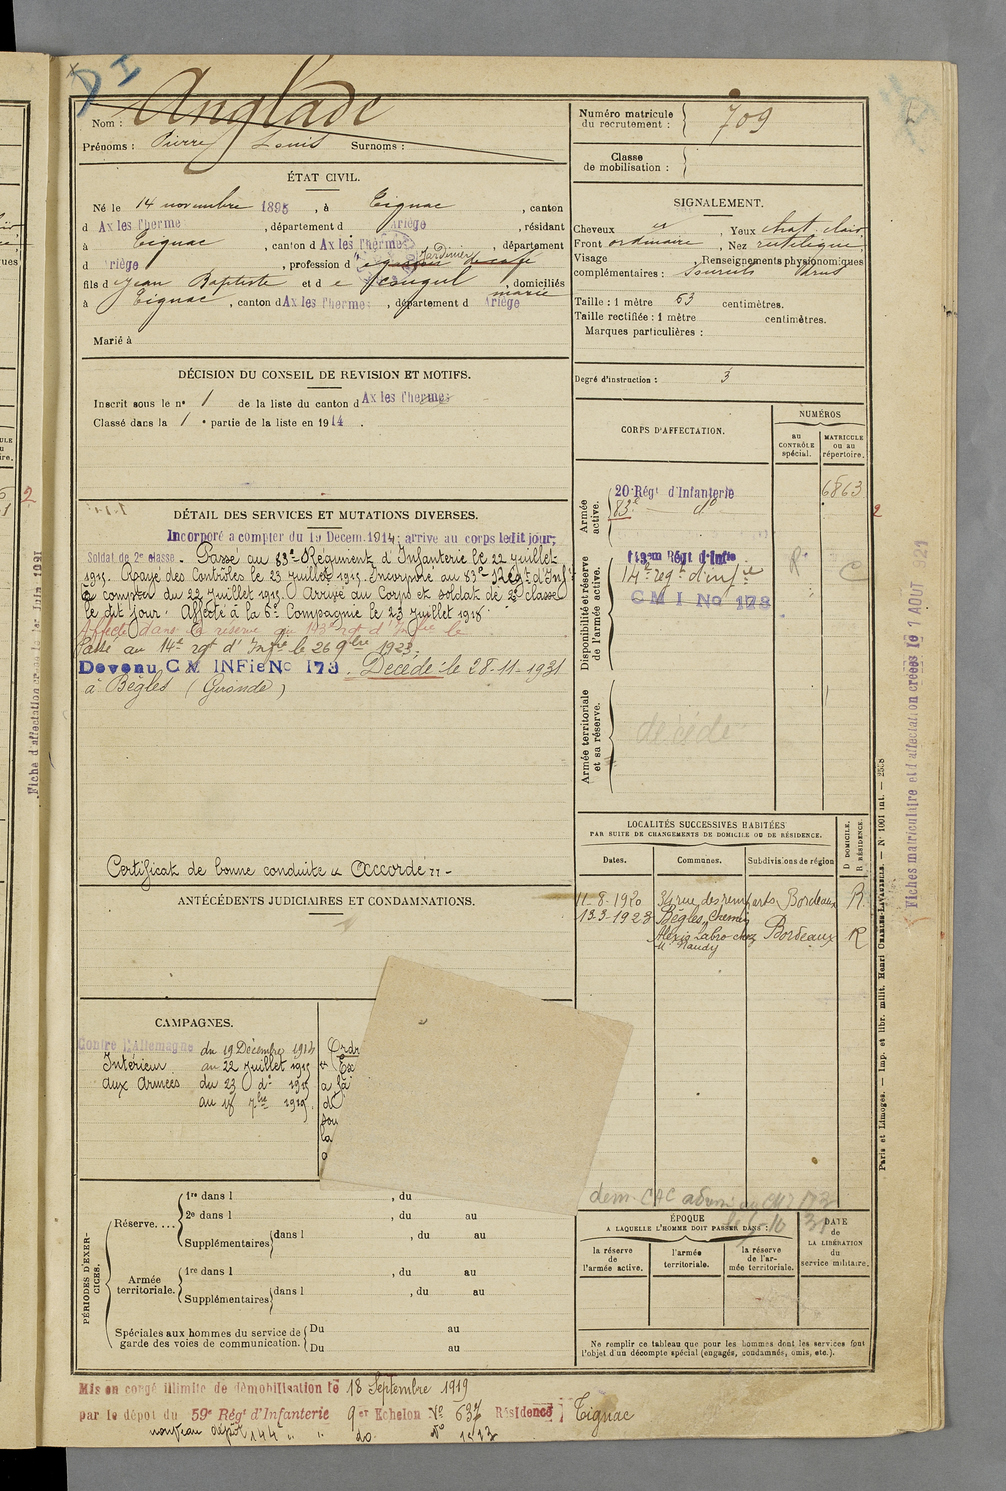 D I
Nom : Anglade
Prénoms : Pierre Louis Surnoms :
ÉTAT CIVIL.
Né le 14 novembre 1895, à Tignac, canton
d Ax les Therme, département d Ariège, résidant
à Tignac, canton d Ax les Thermes, département
d Ariège, profession d Jardinier
fils d Jean Baptiste et d e, domiciliés
à Tignac, canton d Ax les Thermes, département d Ariège
Marié à
DÉCISION DU CONSEIL DE REVISION ET MOTIFS.
Inscrit sous le n° 1 de la liste du canton d Ax les Thermes
Classé dans la 1 e partie de la liste en 1914.
DÉTAIL DES SERVICES ET MUTATIONS DIVERSES.
Incorporé a compter du 19 Decem. 1914; arrive au corps ledit jour,
Soldat de 2e classe - Passé au 83e Régiment d'Infanterie le 22 juillet
1915. Rayé des Contrôles le 23 juillet 1915. Incorporé au 83e Regt d'Inf
à compter du 22 Juillet 1915. Arrivé au Corps et soldat de 2e classe
le dit jour. Affecté à la 6e Compagnie le 23 juillet 1915
Affecté dans la réserve au 143e rgt d'Infie le
Passé au 14e rgt d'Infie le 26 9bre 1923.
Devenu C M INFie No 173. Décédé le 28-11-1931
à Bègles (Gironde)
Certificat de bonne conduite "Accordé" -
ANTÉCÉDENTS JUDICIAIRES ET CONDAMNATIONS.
CAMPAGNES.
Contre l'Allemagne du 19 Décembre 1914
Intérieur au 22 juillet 1915
aux Armées du 23 do 1915
au 18 7bre 1919.
Ordr
PÉRIODES D'EXERCICES.
Réserve....
1re dans l , du
2e dans l , du au
Supplémentaires dans l , du au
Armée territoriale.
1re dans l , du au
Supplémentaires dans l , du au
Spéciales aux hommes du service de garde des voies de communication.
Du au
Du au
Mis en congé illimité de démobilisation le 18 Septembre 1919
par le dépot du 59e Régt d'Infanterie 9 er Echelon No 637 Résidence Tignac
nouveau dépôt 144e " " do. No 1513
Numéro matricule du recrutement : 709
Classe de mobilisation :
SIGNALEMENT.
Cheveux , Yeux chat. clair
Front ordinaire, Nez rectiligne
Visage , Renseignements physionomiques
complémentaires : Sourcils drus
Taille : 1 mètre 63 centimètres.
Taille rectifiée : 1 mètre centimètres.
Marques particulières :
Degré d'instruction : 3
CORPS D'AFFECTATION.
NUMÉROS
au CONTRÔLE spécial.
MATRICULE ou au répertoire.
Armée active.
20e Régt d'Infanterie 6863
83e do
Disponibilité et réserve de l'armée active.
143em Régt d'Infie R
14e regt d'infie C
C M I No 173
Armée territoriale et sa réserve.
décédé
LOCALITÉS SUCCESSIVES HABITÉES
PAR SUITE DE CHANGEMENTS DE DOMICILE OU DE RÉSIDENCE.
Dates. Communes. Subdivisions de région D DOMICILE. R RÉSIDENCE.
11-8-1920 34 rue des remparts Bordeaux R
13.3.1928 Bègles, Chemin
Alexis Labro chez Bordeaux R
M. Naudy
dem. CAC
ÉPOQUE
A LAQUELLE L'HOMME DOIT PASSER DANS :
DATE de LA LIBÉRATION du service militaire.
la réserve de l'armée active.
l'armée territoriale.
la réserve de l'armée territoriale.
Ne remplir ce tableau que pour les hommes dont les services font
l'objet d'un décompte spécial (engagés, condamnés, omis, etc.).
Paris et Limoges. — Imp. et libr. milit. Henri CHARLES-LAVAUZELLE. — N° 1001 int. — 2508
Fiches matriculaire et d'affectation créées le 1 AOUT 1921